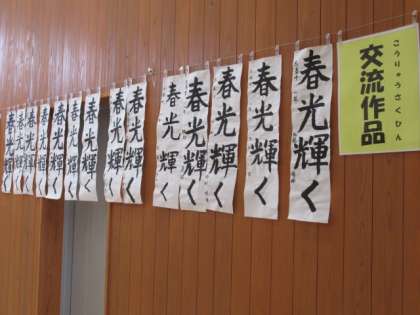 こうりゅうさくひん
交流作品
春光輝く
春光輝く
春光輝く
春光輝く
春光輝く
春光輝く
春光輝く
春光輝く
春光輝く
春光輝く
春光輝く
春光輝く
春光輝く